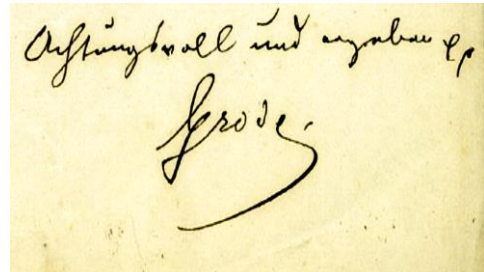 Achtungsvoll und ergeben
Grode.